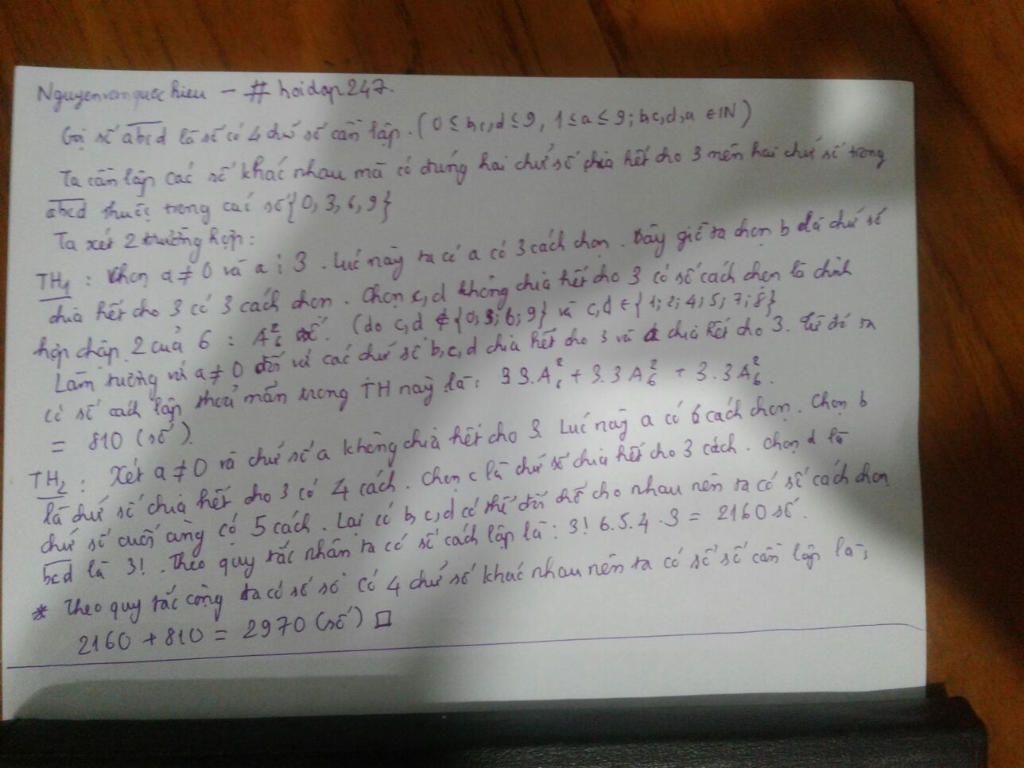 Nguyenvanquochieu - # hoidap247.
Gọi số abcd là số có 4 chữ số cần lập. (0 ≤ b,c,d ≤ 9, 1 ≤ a ≤ 9; b,c,d,a ∈ IN)
Ta cần lập các số khác nhau mà có đúng hai chữ số chia hết cho 3 nên hai chữ số trong
abcd thuộc trong các số {0, 3, 6, 9}
Ta xét 2 trường hợp:
TH1 : Chọn a ≠ 0 và a ⋮ 3. Lúc này ta có a có 3 cách chọn. Bây giờ ta chọn b là chữ số
chia hết cho 3 có 3 cách chọn. Chọn c,d không chia hết cho 3 có số cách chọn là chỉnh
hợp chập 2 của 6 : A²₆ số. (do c,d ∉ {0; 3; 6; 9} và c,d ∈ {1; 2; 4; 5; 7; 8})
Làm tương với a ≠ 0 đối với các chữ số b,c,d chia hết cho 3 và a chia hết cho 3. Từ đó ta
có số cách lập thoả mãn trong TH này là: 3.3.A²₆ + 3.3A²₆ + 3.3A²₆.
= 810 (số).
TH2 : Xét a ≠ 0 và chữ số a không chia hết cho 3. Lúc này a có 6 cách chọn. Chọn b
là chữ số chia hết cho 3 có 4 cách. Chọn c là chữ số chia hết cho 3 cách. Chọn d là
chữ số cuối cùng có 5 cách. Lại có b,c,d có thể đổi chỗ cho nhau nên ta có số cách chọn
bcd là 3!. Theo quy tắc nhân ta có số cách lập là: 3! 6.5.4.3 = 2160 số.
* Theo quy tắc cộng ta có số số có 4 chữ số khác nhau nên ta có số số cần lập là:
2160 + 810 = 2970 (số) □